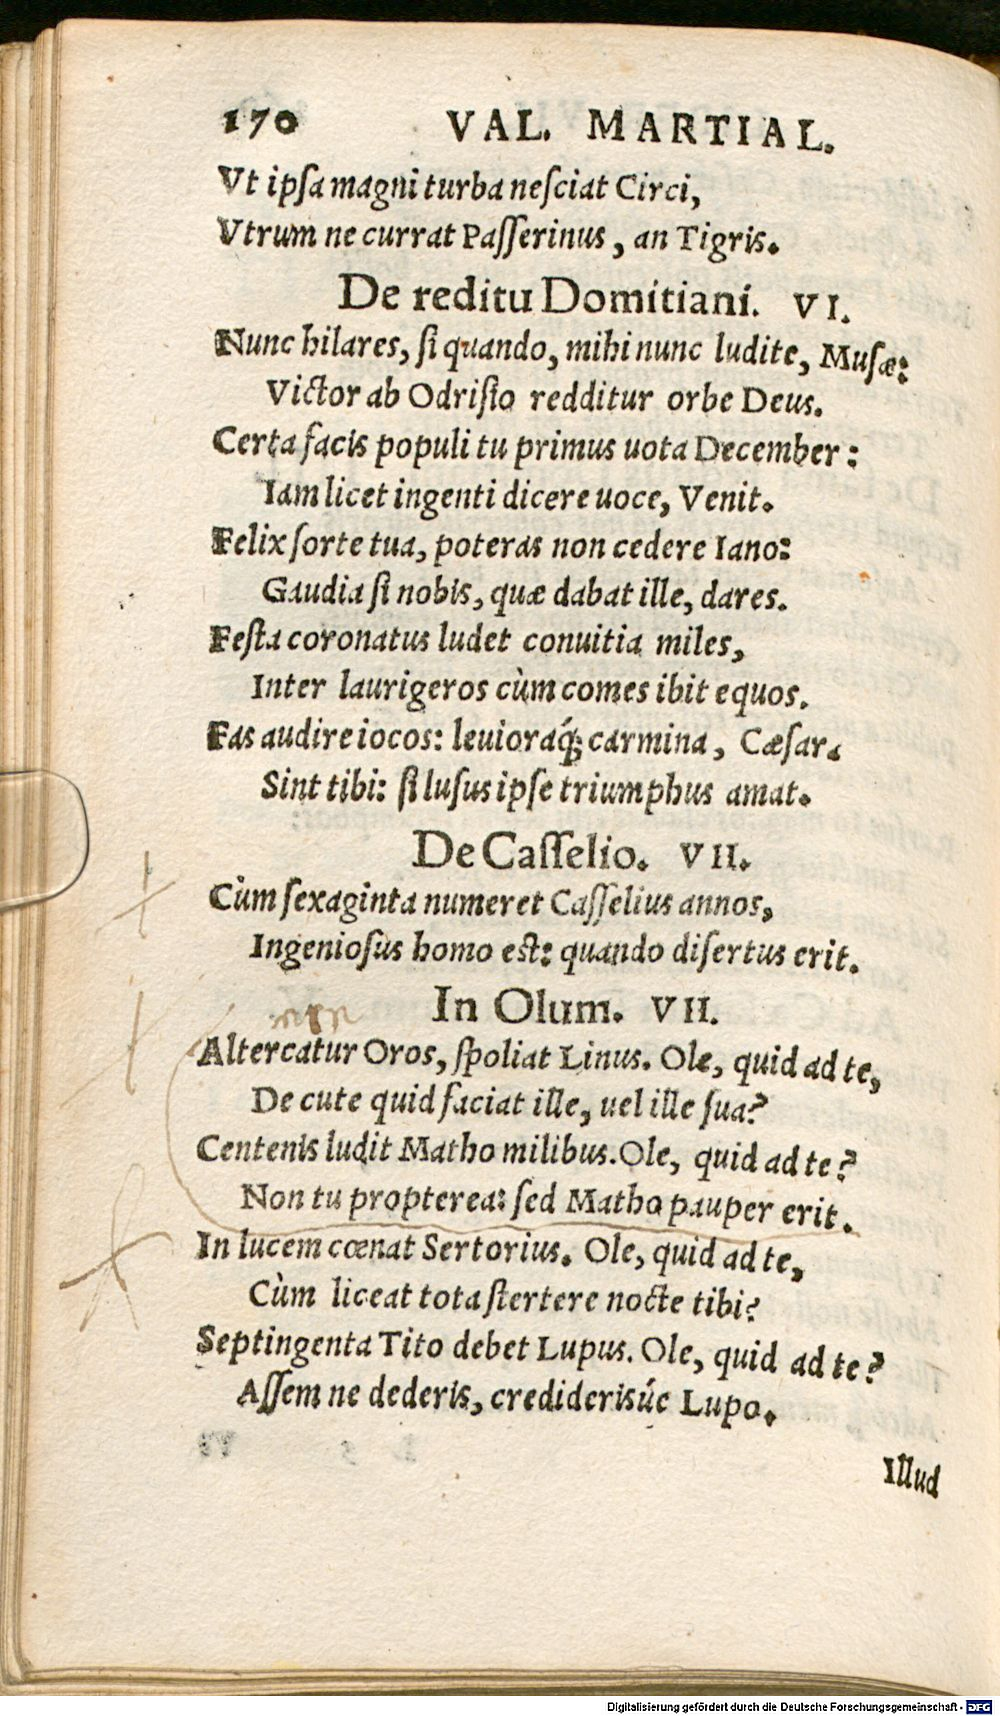 170 VAL. MARTIAL.
Vt ipsa magni turba nesciat Circi,
Vtrum ne currat Passerinus, an Tigris.
De reditu Domitiani. VI.
Nunc hilares, si quando, mihi nunc ludite, Musæ:
Victor ab Odrisio redditur orbe Deus.
Certa facis populi tu primus uota December:
Iam licet ingenti dicere uoce, Venit.
Felix sorte tua, poteras non cedere Iano:
Gaudia si nobis, quæ dabat ille, dares.
Festa coronatus ludet conuitia miles,
Inter laurigeros cùm comes ibit equos.
Fas audire iocos: leuioraq́; carmina, Cæsar.
Sint tibi: si lusus ipse triumphus amat.
De Casselio. VII.
Cùm sexaginta numeret Casselius annos,
Ingeniosus homo est: quando disertus erit.
In Olum. VII.
Altercatur Oros, spoliat Linus. Ole, quid ad te,
De cute quid faciat ille, uel ille sua?
Centenis ludit Matho milibus. Ole, quid ad te?
Non tu propterea: sed Matho pauper erit.
In lucem cœnat Sertorius. Ole, quid ad te,
Cùm liceat tota stertere nocte tibi?
Septingenta Tito debet Lupus. Ole, quid ad te?
Assem ne dederis, crediderisúe Lupo.
Illud
Digitalisierung gefördert durch die Deutsche Forschungsgemeinschaft - DFG